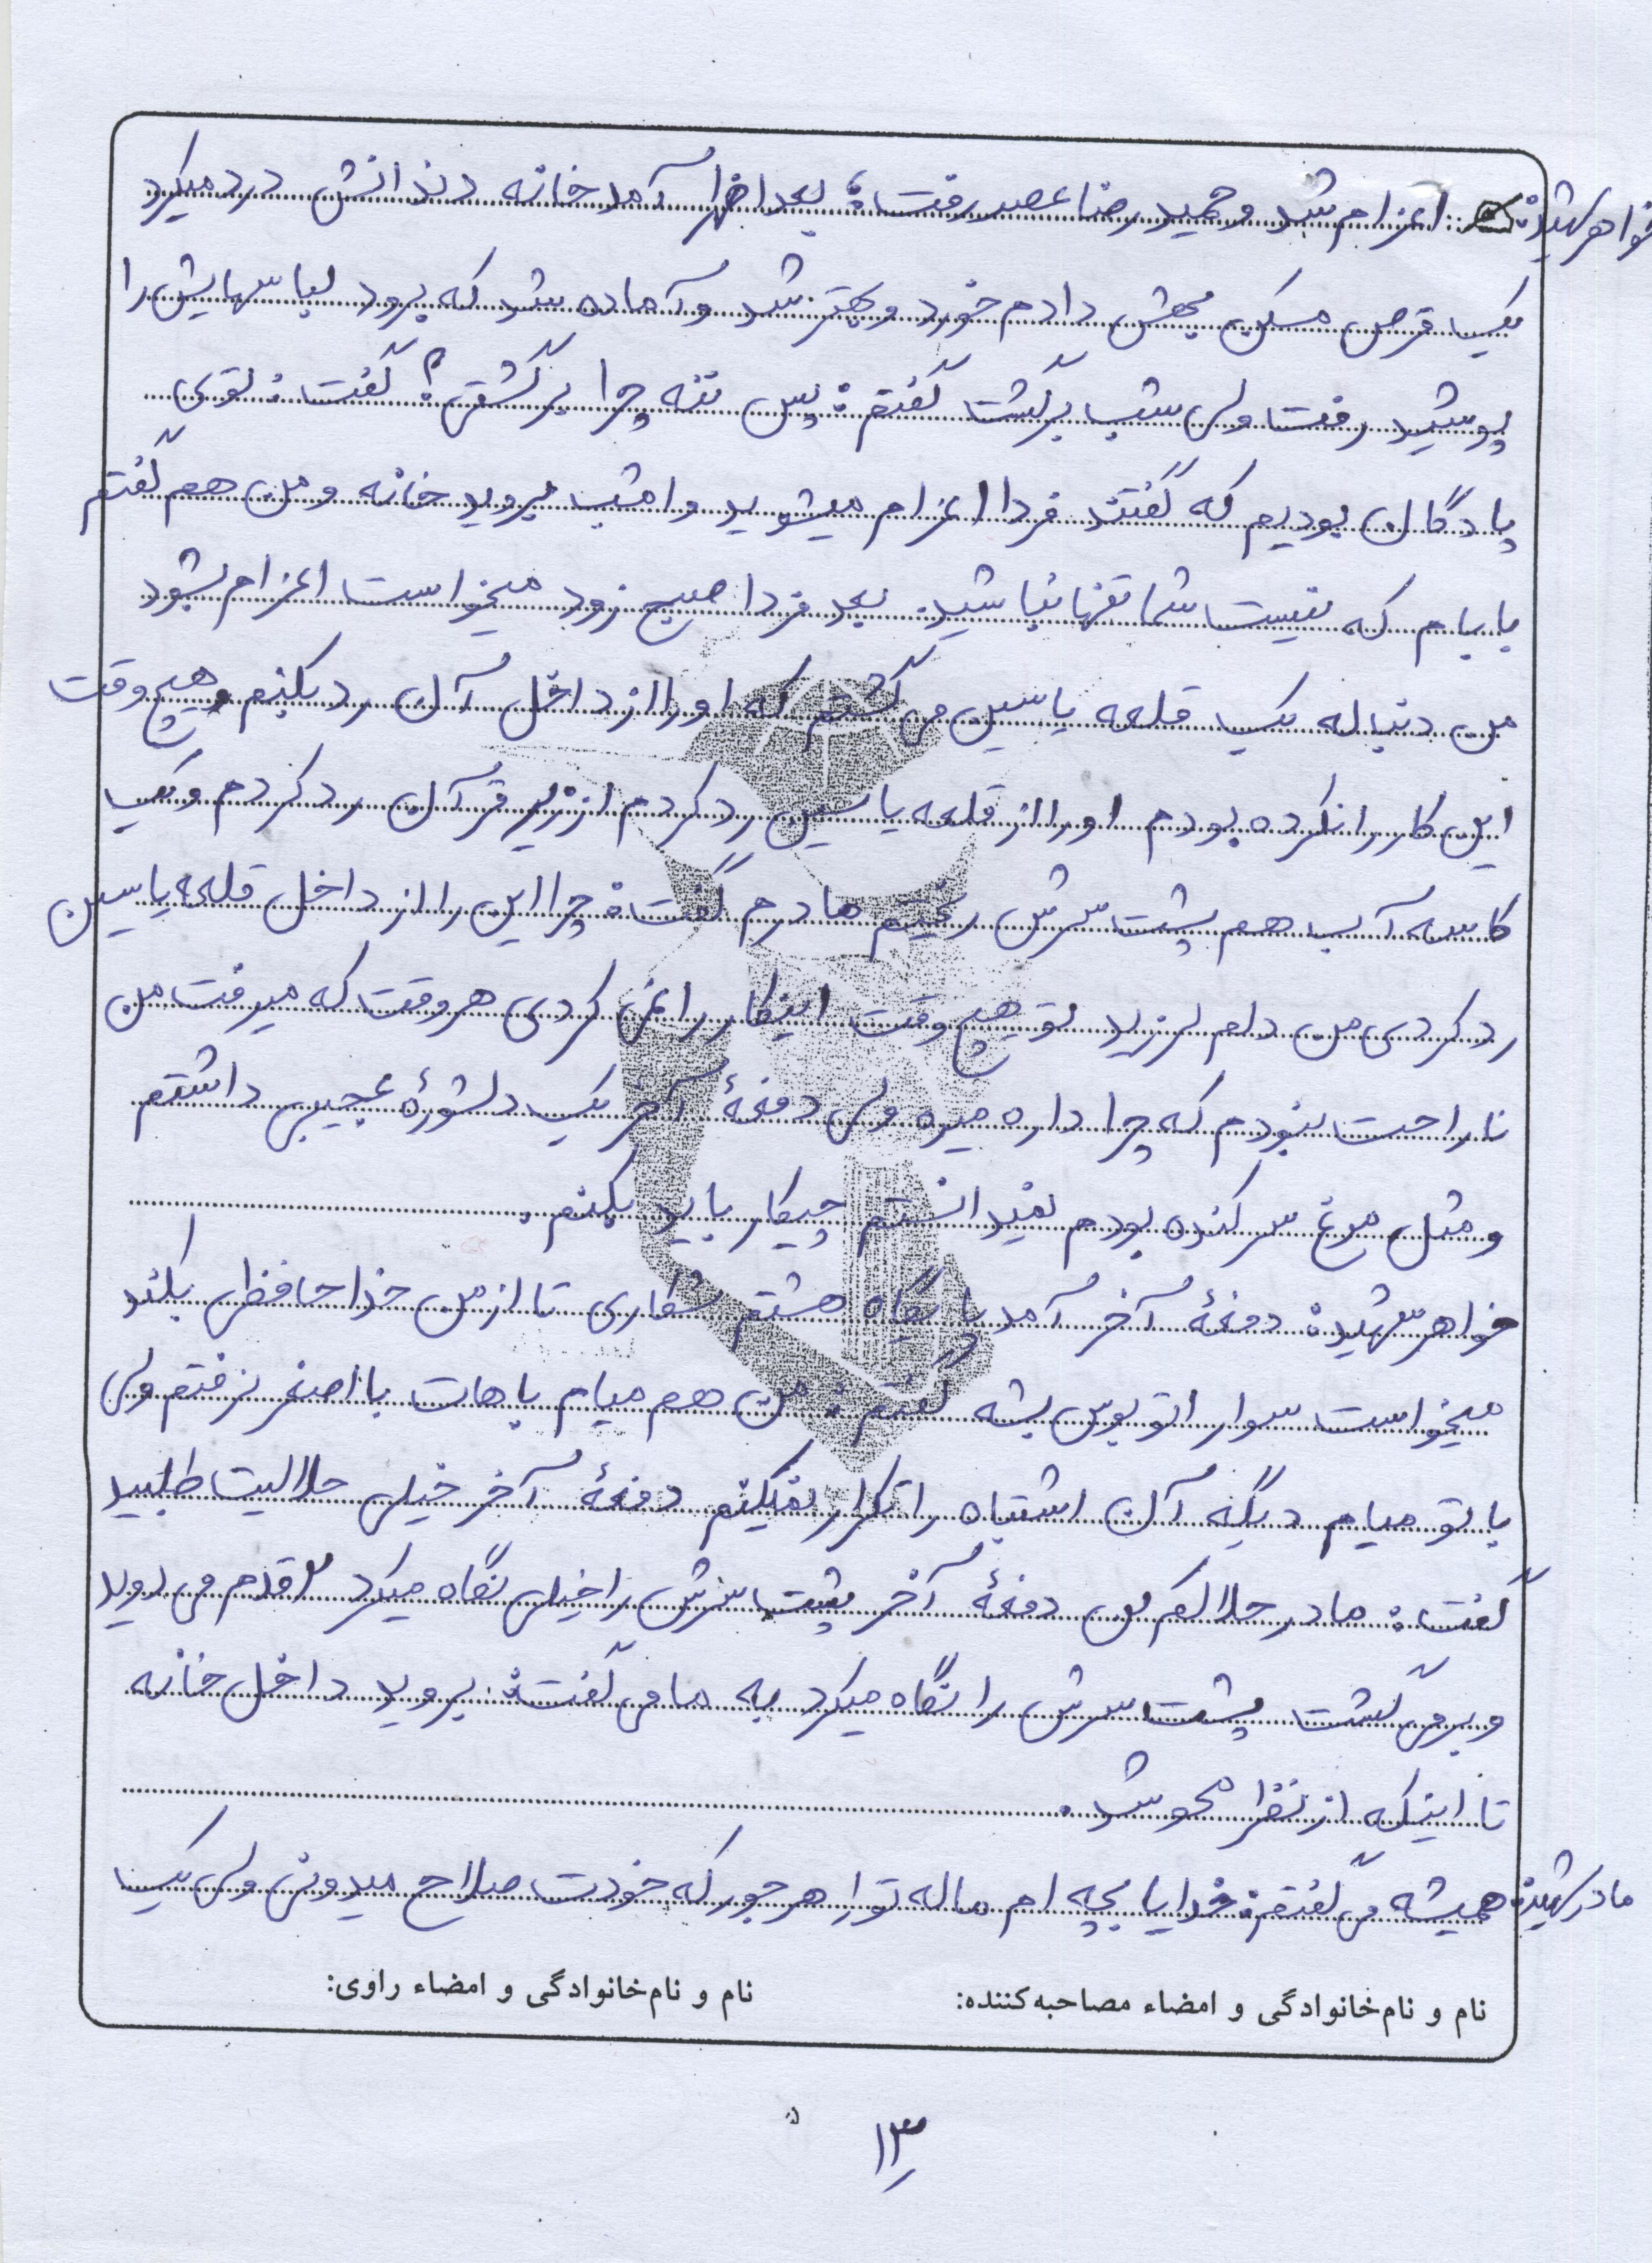 خواهر شهید: اعزام شد و حمید رضا عصر رفت؛ بعدازظهر آمد خانه دندانش درد میکرد
یک قرص مسکن بهش دادم خورد و بهتر شد و آماده شد که برود لباسهایش را
پوشید رفت ولی شب برگشت گفتم: پس ننه چرا برگشتی؟ گفت: توی
پادگان بودیم که گفتند فردا اعزام میشوید و امشب بروید خانه و من هم گفتم
بابام که نیست شما تنها نباشید. بعد فردا صبح زود میخواست اعزام بشود
من دنباله یک قلعه یاسین می گشتم که او را از داخل آن رد بکنم و هیچ وقت
این کار را نکرده بودم او را از قلعه یاسین رد کردم از زیر قرآن رد کردم و یک
کاسه آب هم پشت سرش ریختم مادرم گفت: چرا این را از داخل قلعه یاسین
رد کردی من دلم لرزید تو هیچ وقت اینکار را نمی کردی هر وقت که میرفت من
ناراحت نبودم که چرا داره میره ولی دفعهٔ آخر یک دلشورهٔ عجیبی داشتم
و مثل مرغ سرکنده بودم نمیدانستم چیکار باید بکنم.
خواهر شهید: دفعهٔ آخر آمد پایگاه هشتم شکاری تا از من خداحافظی بکند
میخواست سوار اتوبوس بشه گفتم: من هم میام باهات با اصغر نرفتم ولی
با تو میام دیگه آن اشتباه را تکرار نمیکنم دفعهٔ آخر خیلی حلالیت طلبید
گفت: مادر حلالم کن دفعهٔ آخر پشت سرش را خیلی نگاه میکرد ۲ قدم می دوید
و برمی گشت پشت سرش را نگاه میکرد به ما می گفت: بروید داخل خانه
تا اینکه از نظر محو شد.
مادر شهید: همیشه می گفتم: خدایا بچه ام ماله توا هر جور که خودت صلاح میدونی ولی یک
نام و نام‌خانوادگی و امضاء مصاحبه‌کننده: نام و نام‌خانوادگی و امضاء راوی:
۱۳